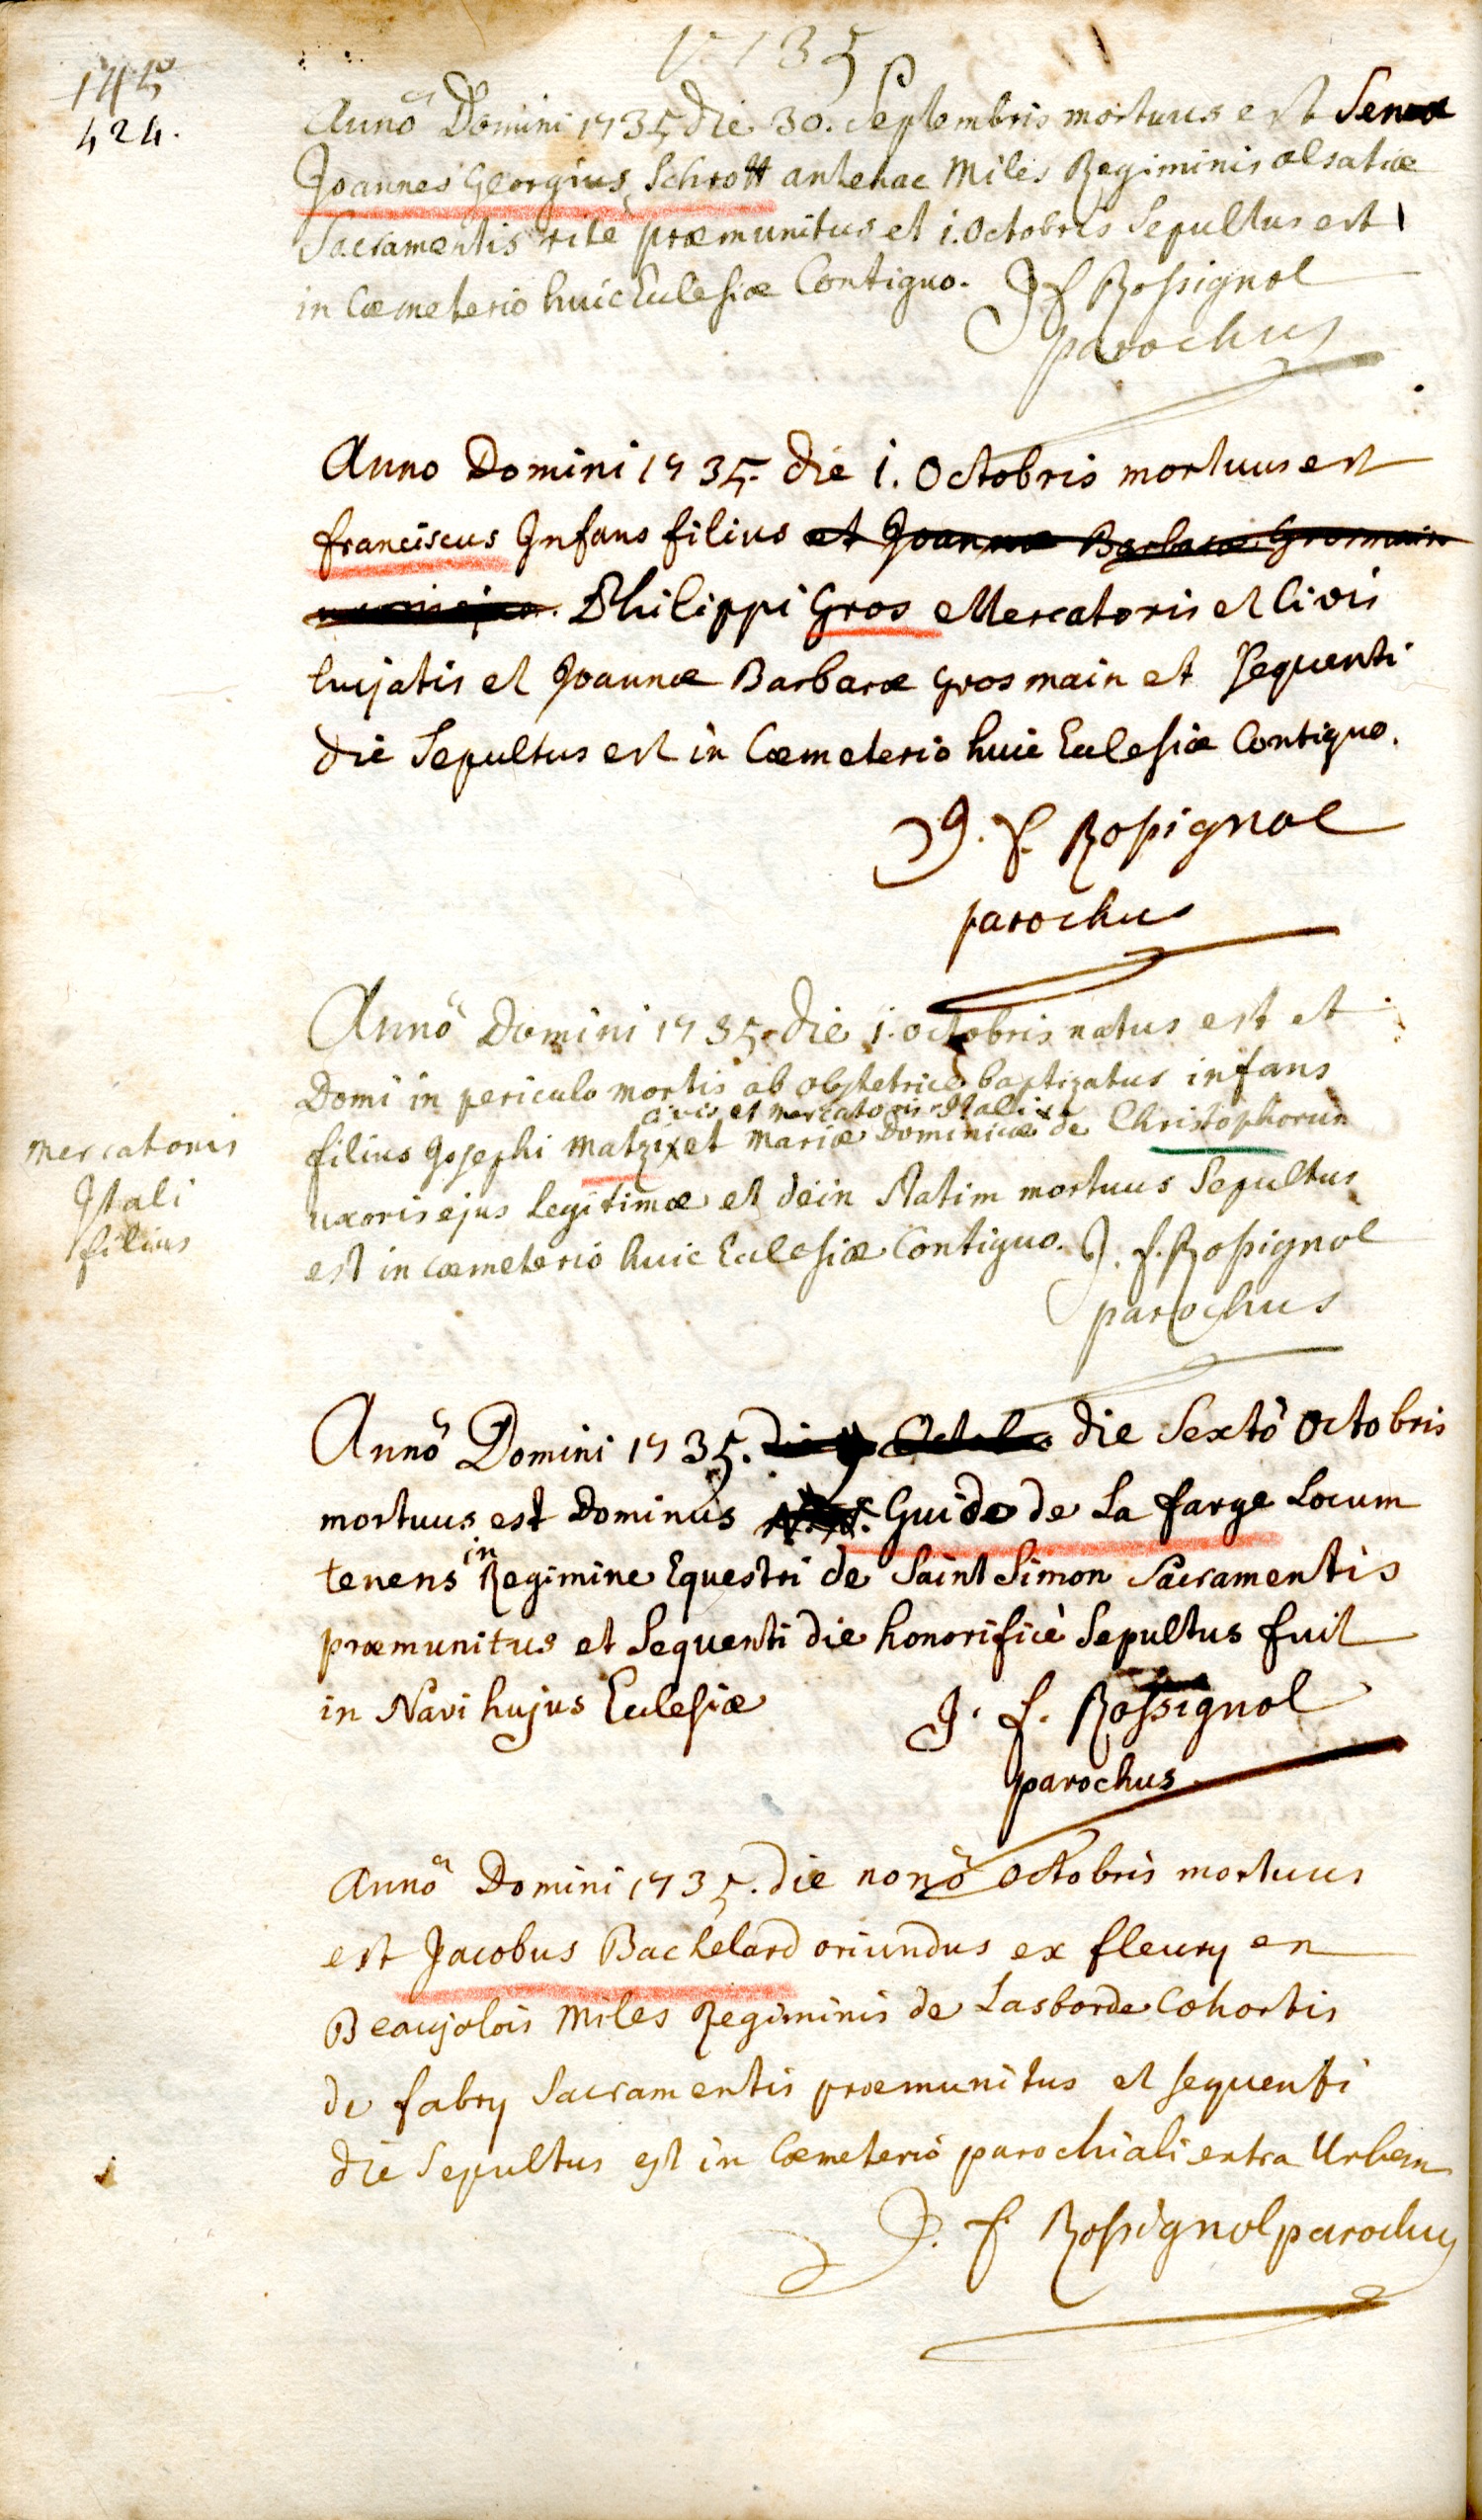 1735
145
424.
Annô Domini 1735 die 30. Septembris mortuus est Senex
Joannes Georgius Schrott antehac Miles Regiminis alsatiæ
Sacramentis rite præmunitus et i. Octobris Sepultus est
in Cæmeterio huic Eclesiæ Contiguo. J f Rossignol
parochus
Anno Domini 1735. die i. Octobris mortuus est
franciscus Infans filius et Joannæ Barbaræ Grosmain
Philippi Gros Mercatoris et Civis
hujatis et Joannæ Barbaræ Grosmain et sequenti
die Sepultus est in Cæmeterio huic Eclesiæ Contiguo.
J. f. Rossignol
parochus
Annô Domini 1735. die i. octobris natus est et
Domi in periculo mortis ab obstetrice baptizatus infans
civis et mercatoris Itali
filius Josephi Matzi x et Mariæ Dominicæ de Christophorun
uxoris ejus Legitimæ et dein statim mortuus Sepultus
est in cæmeterio huic Eclesiæ Contiguo. J. f. Rossignol
parochus
mercatoris
Itali
filius
Annô Domini 1735. die Octob die Sextô Octobris
mortuus est Dominus Guido de La farge Locum
in
tenens Regimine Equestri de Saint Simon Sacramentis
præmunitus et Sequenti die honorificè Sepultus fuit
in Navi hujus Eclesiæ J. f. Rossignol
parochus
Annô Domini 1735. die nonô octobris mortuus
est Jacobus Bachelard oriundus ex fleury en
Beaujolois Miles Regiminis de Lasborde Cohortis
de fabry Sacramentis præmunitus et sequenti
die Sepultus est in Cæmeterio parochiali extra Urbem
J. f Rossignol parochus